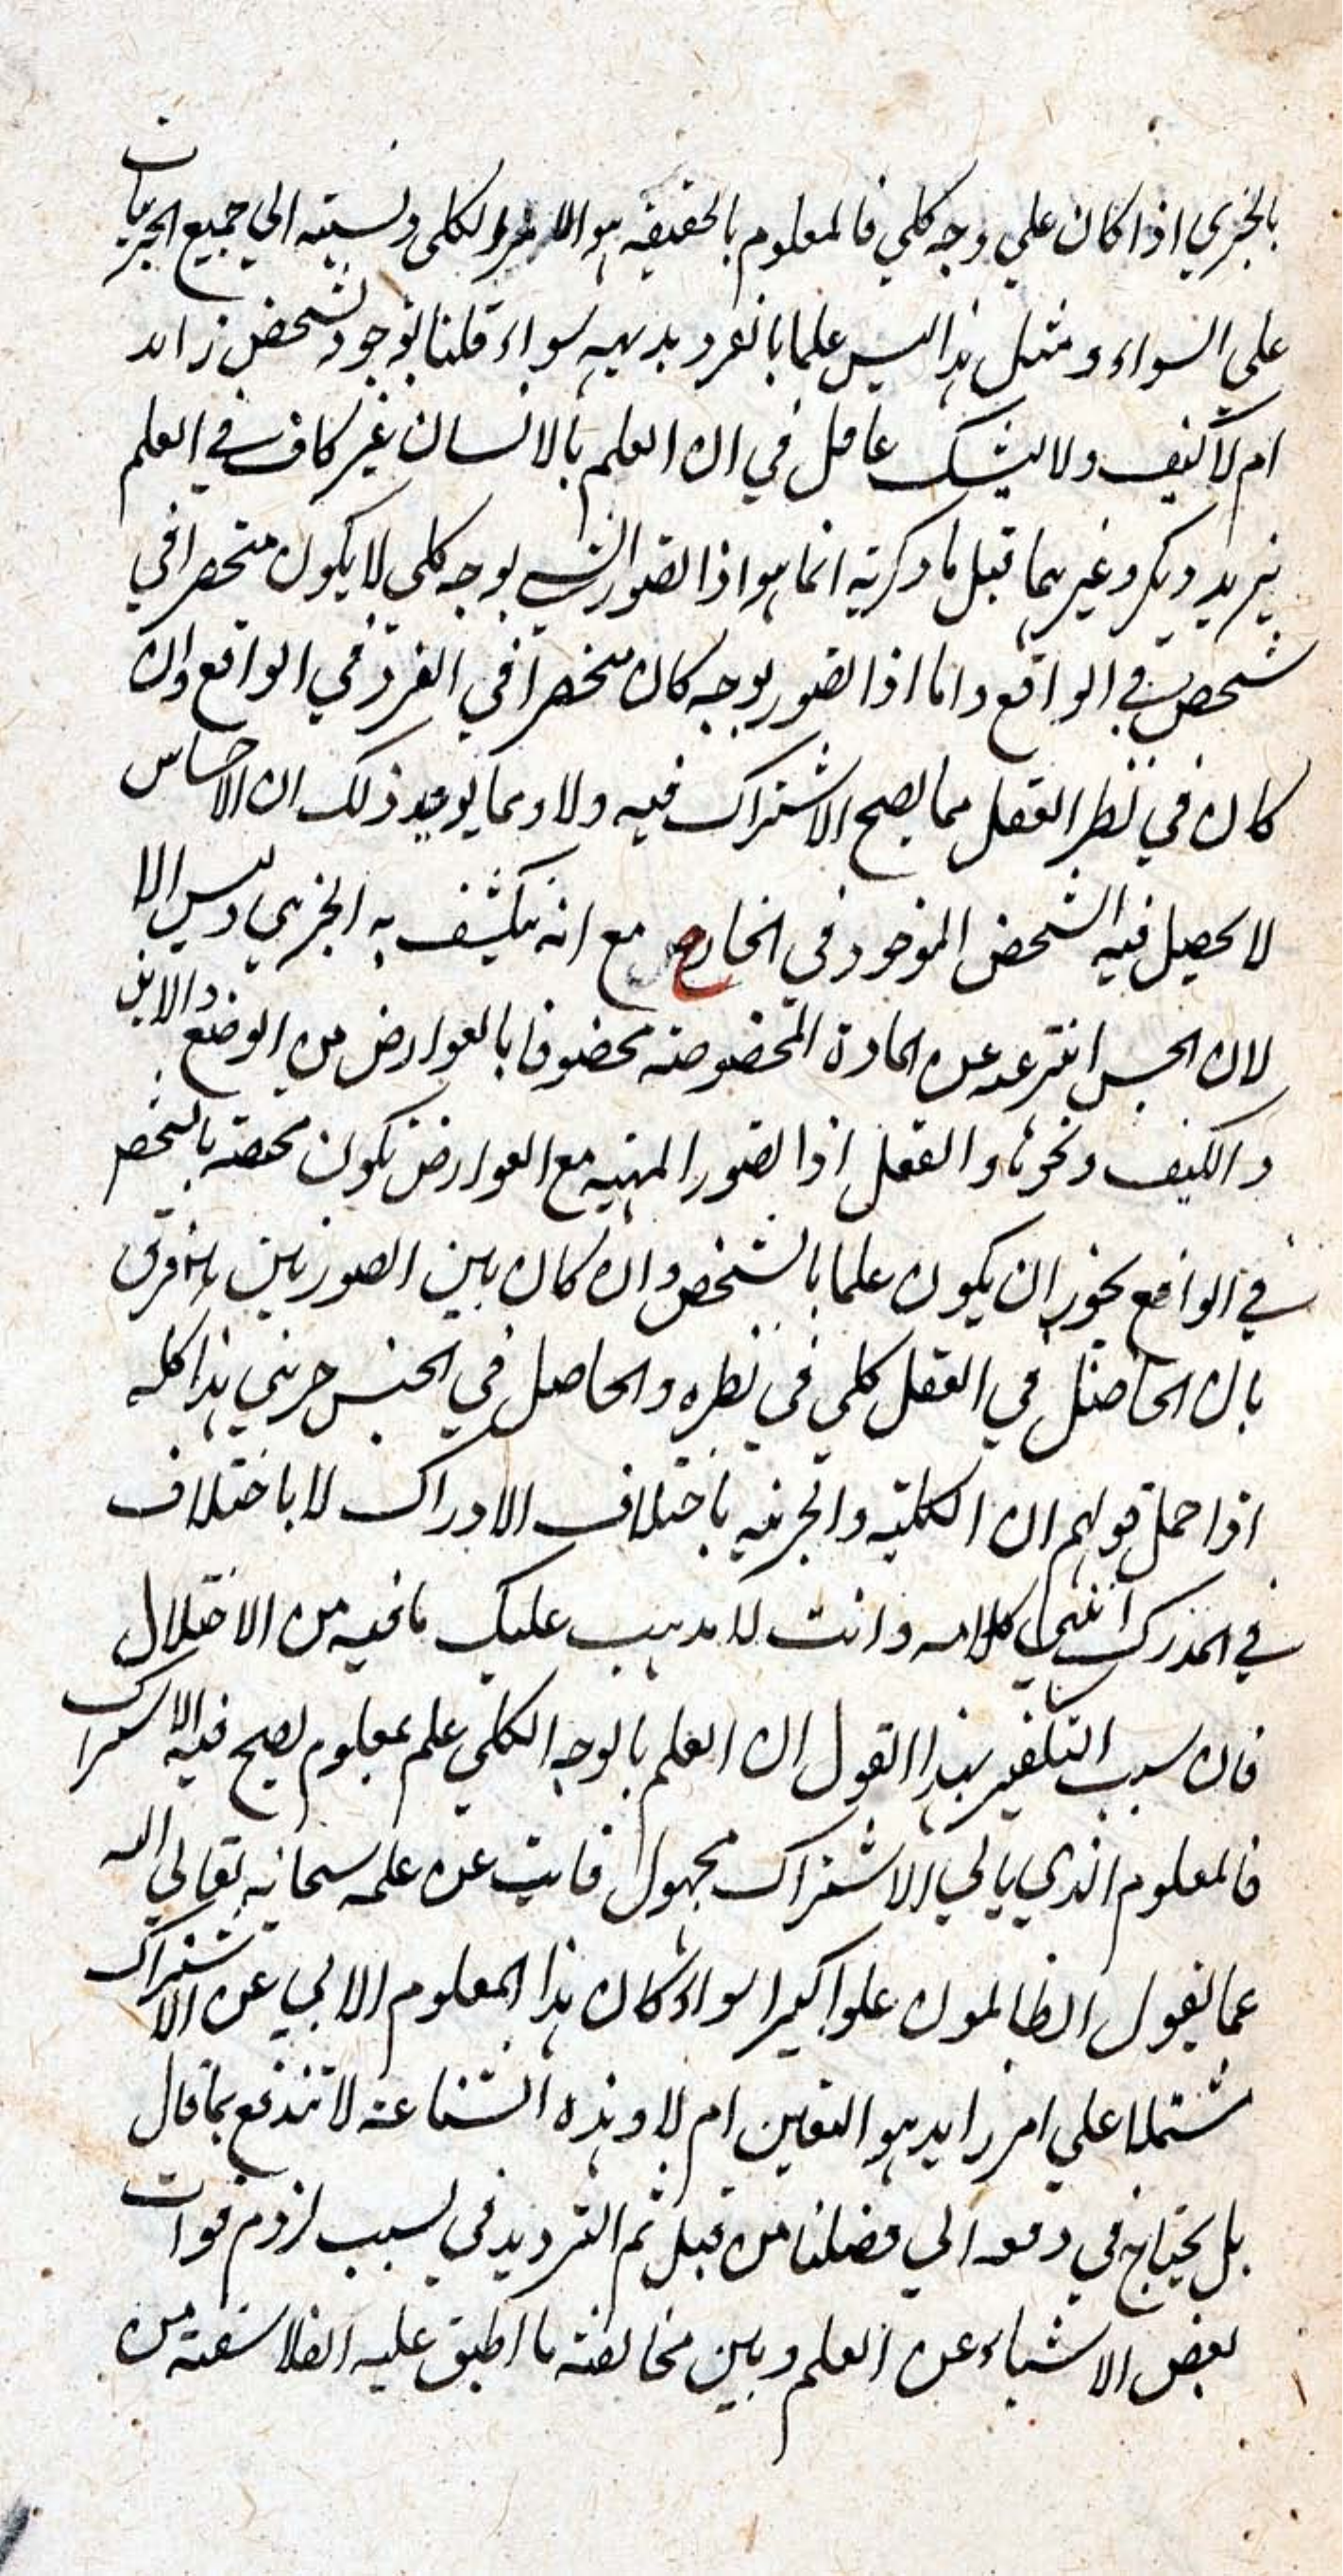 بالجزئي اذا كان علي وجه كلي فالمعلوم بالحقيقه هو الامر الكلي ونسبته الي جميع الجزئيات
علي السواء و مثل هذا ليس علما بالفرد بديهيه سواء قلنا بوجود تشخص زايد
ام لا كيف ولا يشك عاقل في ان العلم بالانسان غير كاف في العلم
بزيد وبكر وغيرهما قيل ما ذكرته انما هو اذا تصور الشي بوجه كلي لا يكون منحصرا في
شخص في الواقع واما اذا تصور بوجه كان منحصرا في الفرد في الواقع وان
كان في نظر العقل مما يصح الاشتراك فيه ولا ومما يويد ذلك ان الاحساس
لا يحصل فيه الشخص الموجود في الخارج مع انه ينكشف به الجزئي وليس الا
لان الحس انتزعه عن المادة المخصوصة محفوفا بالعوارض من الوضع والاين
والكيف ونحوها والعقل اذا تصور المهية مع العوارض تكون مختصة بالشخص
في الواقع يجوز ان يكون علما بالشخص وان كان بين الصورتين فرق
بان الحاصل في العقل كلي في نظره والحاصل في الحس جزئي هذا كله
اذا حمل قولهم ان الكلية والجزئية باختلاف الادراك لا باختلاف
في المدرك انتهي كلامه وانت لا يذهب عليك ما فيه من الاختلال
فان سبب التكفير بهذا القول ان العلم بالوجه الكلي علم بمعلوم يصح فيه الاشتراك
فالمعلوم الذي يابي الاشتراك مجهول فايت عن علمه سبحانه تعالي الله
عما يقول الظالمون علوا كبيرا سواء كان هذا المعلوم الابي عن الاشتراك
مشتملا علي امر زايد هو التعين ام لا وهذه الشناعة لا تندفع بما قال
بل يحتاج في دفعه الي فضلنا من قبل ثم الترديد في سبب لزوم فوات
بعض الاشياء عن العلم وبين مخالفة ما اطبق عليه الفلاسفة من